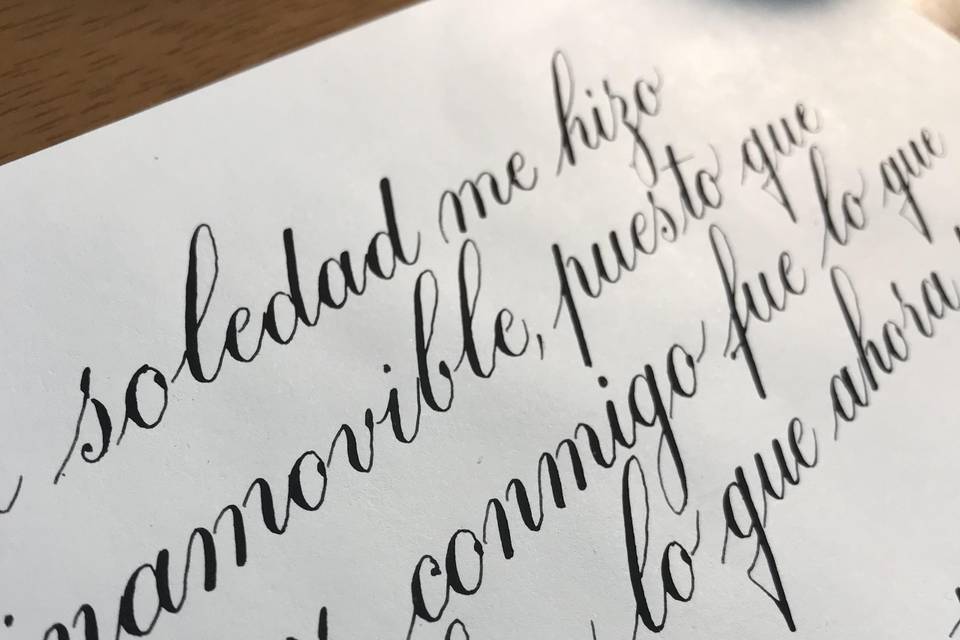 soledad me hizo
inamovible, puesto que
conmigo fue lo que
lo que ahora